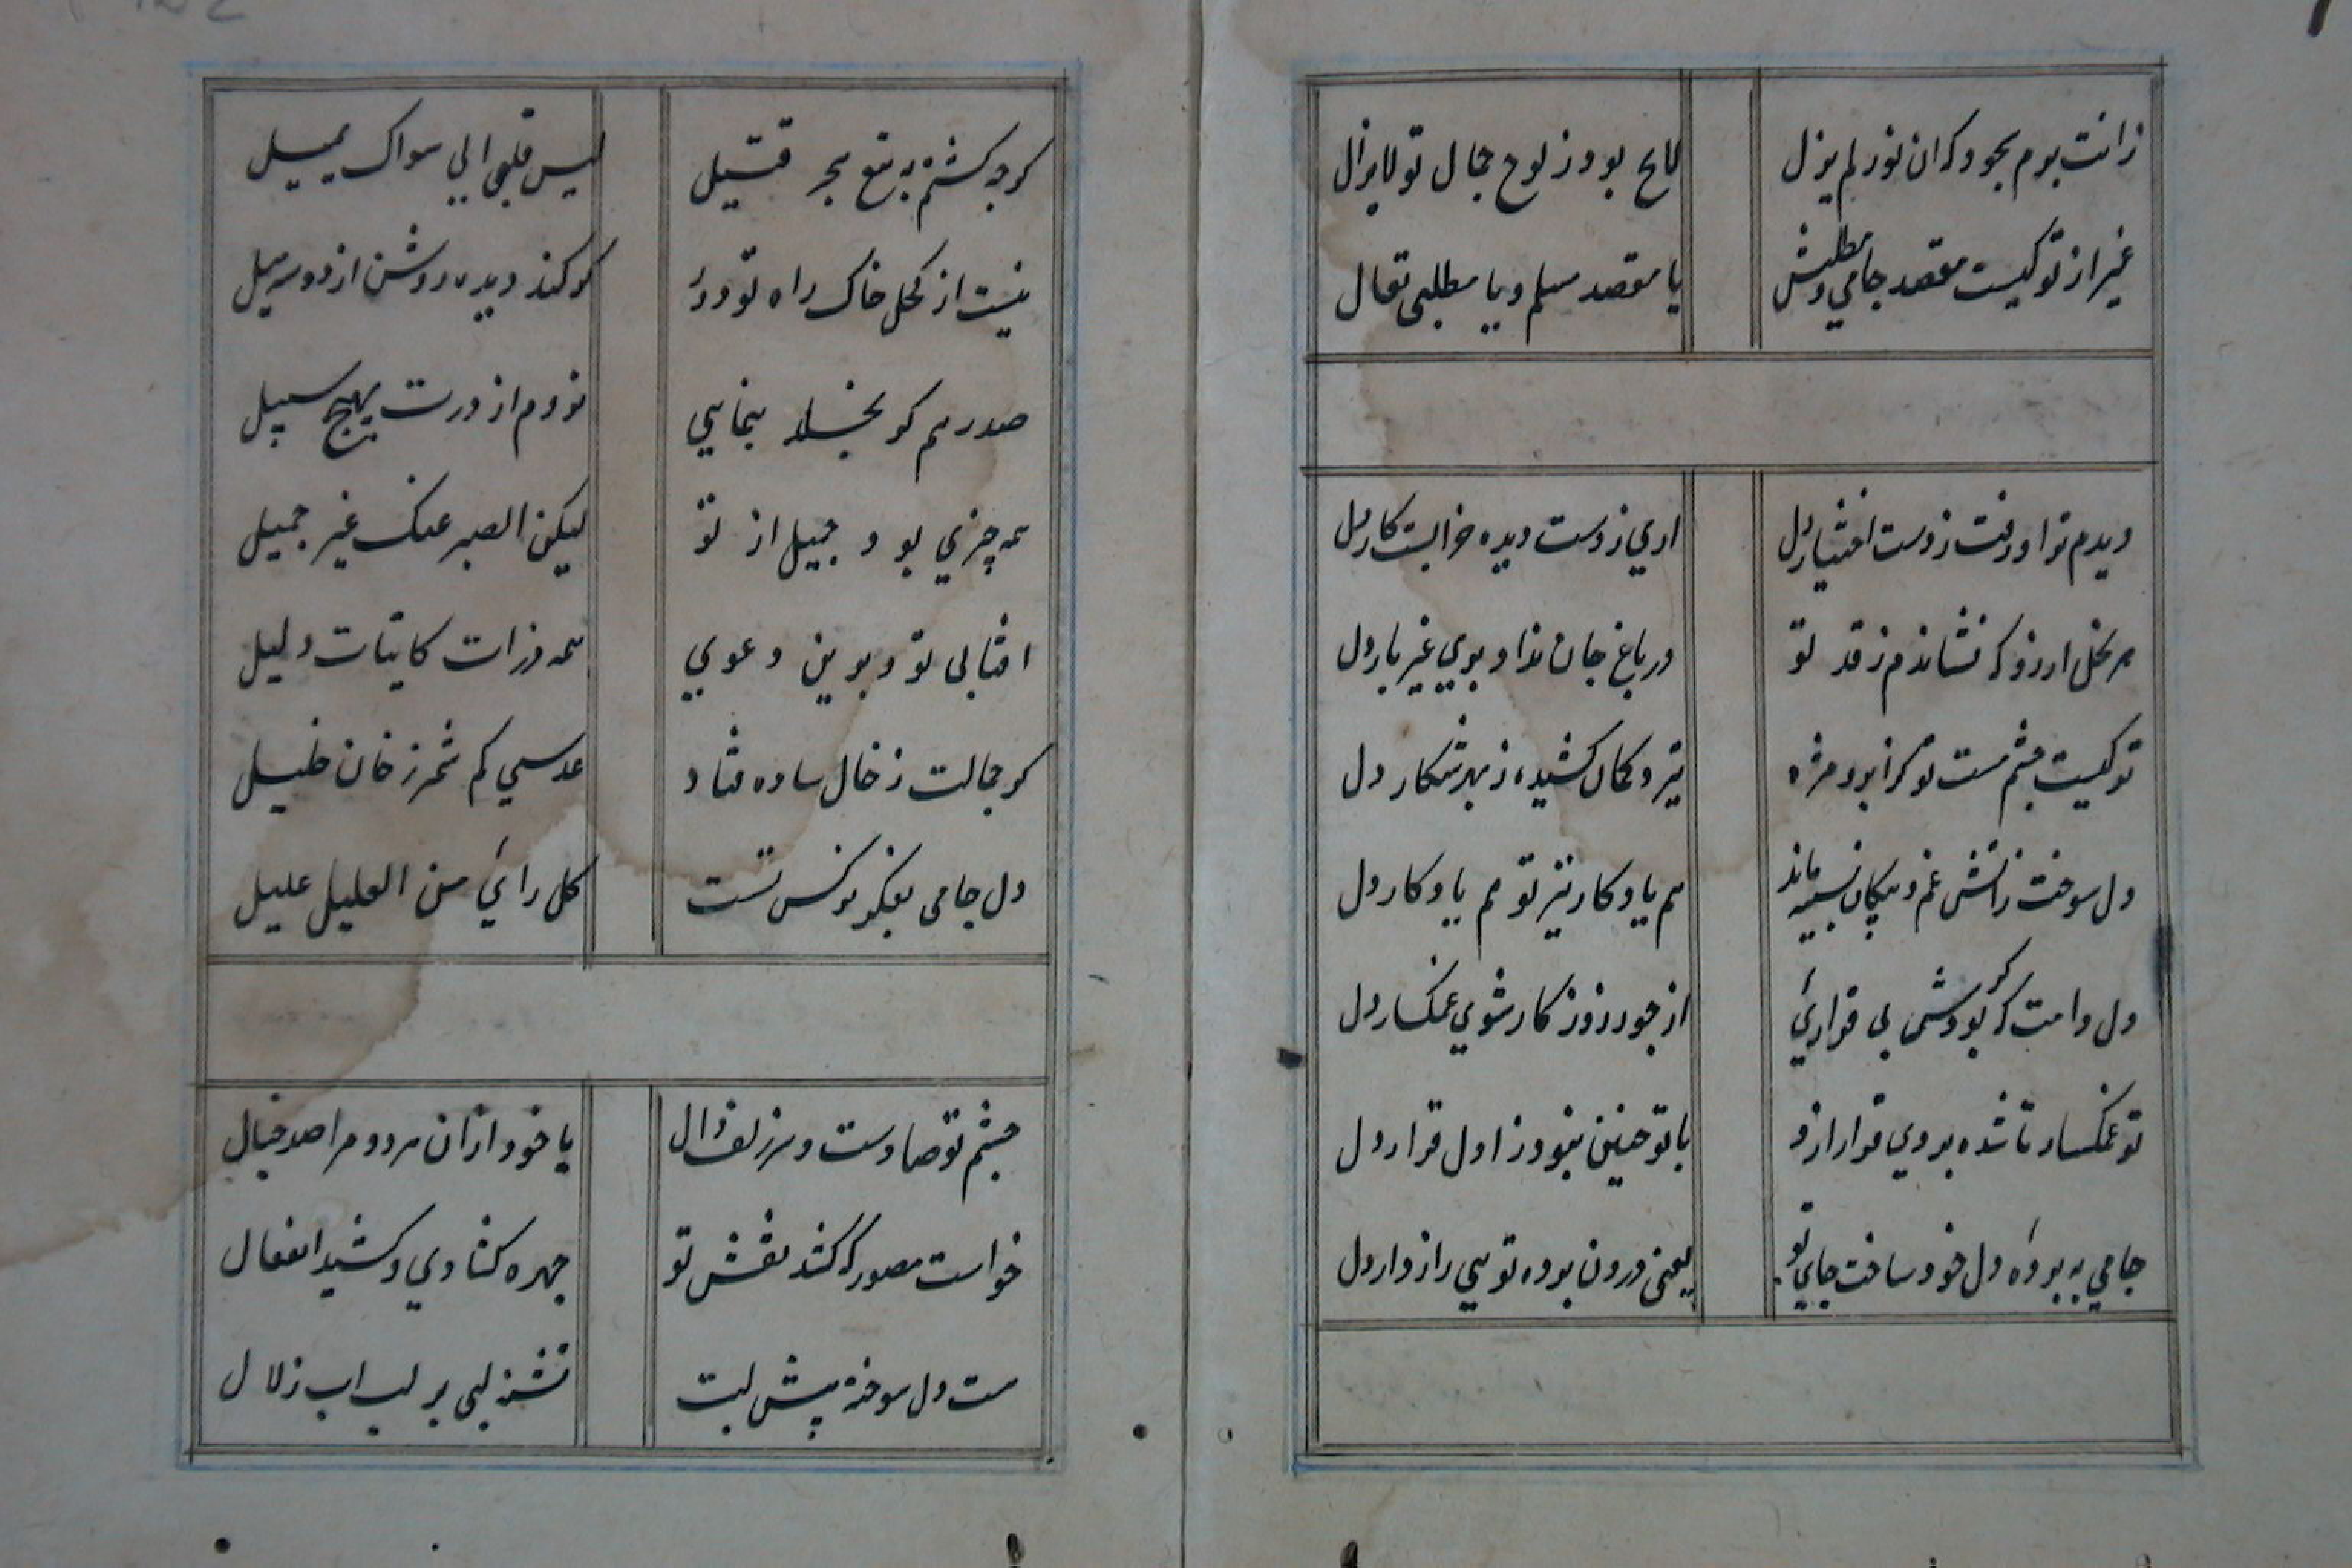 زانت برم بجود که ان نور لم یزل
لایح بود ز لوح جمال تو لایزال
غیر از تو کیست مقصد جامی و مطلبش
یا مقصد سلم و یا مطلبی تعال
دیدم ترا و رفت ز دست اختیار دل
اری ز دست دیده خرابست کار دل
هر نخل ارزو که نشاندم ز قد تو
در باغ جان نداد بویی غیر بار دل
ترکیست چشم مست تو کز ابرو و مژه
تیر و کمان کشیده ز بهر شکار دل
دل سوخت ز اتش غم و پیکان بسینه ماند
هم یادکار تیر تو هم یادکار دل
دل دامت که بودش بی قراریٔ
از جور روزکار شوی غمکسار دل
تو غمکسار تا شده بردی قرار ازو
با تو چنین نبود ز اول قرار دل
جامی به برده دل خود ساخت جای تو
یعنی درون برده تویی رازدار دل
کرچه کشتم به تیغ هجر قتیل
لیس قلبی الی سواک یمیل
نیست از کحل خاک راه تو دور
کر کند دیده روشن از دو سه میل
صد رهم کر بخلد بنمایی
نروم از درت بهیچ سبیل
همه چیزی بود جمیل از تو
لیکن الصبر عنک غیر جمیل
افتابی تو و برین دعوی
همه ذرات کاینات دلیل
کر جمالت ز خال ساده فتاد
عدسی کم شمر ز خان خلیل
دل جامی بفکر نرکس تست
کل رائٍ من العلیل علیل
چشم تو صادست و سر زلف دال
با خود ازان هر دو مرا صد خیال
خواست مصور که کشد نقش تو
چهره کشادی و کشید انفعال
هست دل سوخته پیش لبت
تشنه لبی بر لب اب زلال